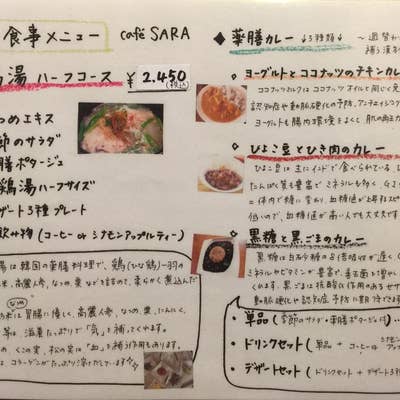 食事メニュー café SARA
湯 ハーフコース ¥2,450(税込)
つめエキス
節のサラダ
膳ポタージュ
鶏湯ハーフサイズ
デザート3種プレート
飲み物(コーヒー or シナモンアップルティー)
湯は韓国の薬膳料理で、鶏(ひな鶏)一羽の
米、高麗人参、なつめ、栗などを詰めて、柔らかく煮込んだ
米は胃腸に優しく、高麗人参、なつめ、栗、にんにく、
等は、滋養たっぷりで「気」を補ってくれます。
のくこの実、松の実は「血」を補う作用もあります。
はコラーゲンがたっぷり溶けだしています
◆薬膳カレー 3種類
ヨーグルトとココナッツのチキンカレー
ココナッツミルクはココナッツオイルと同じく
認知症や動脈硬化の予防、アンチエイジング
ヨーグルトも腸内環境をよくし、肌の
ひよこ豆とひき肉のカレー
ひよこ豆は主にインドで食べられている
たんぱく質も豊富でミネラルも多く、GI
体内で糖に変わり、血糖値が上昇
低いので、血糖値が高い人でも大丈夫です
黒糖と黒ごまのカレー
黒糖は白砂糖の8倍吸収が遅く
ミネラルやビタミンが豊富で、善玉菌を増や
れます。黒ごまは抗酸化作用のあるセサ
動脈硬化や認知症予防に期待できます
・単品(季節のサラダ・薬膳ポタージュ付)
・ドリンクセット(単品+コーヒー or
・デザートセット(ドリンクセット+デザート3種